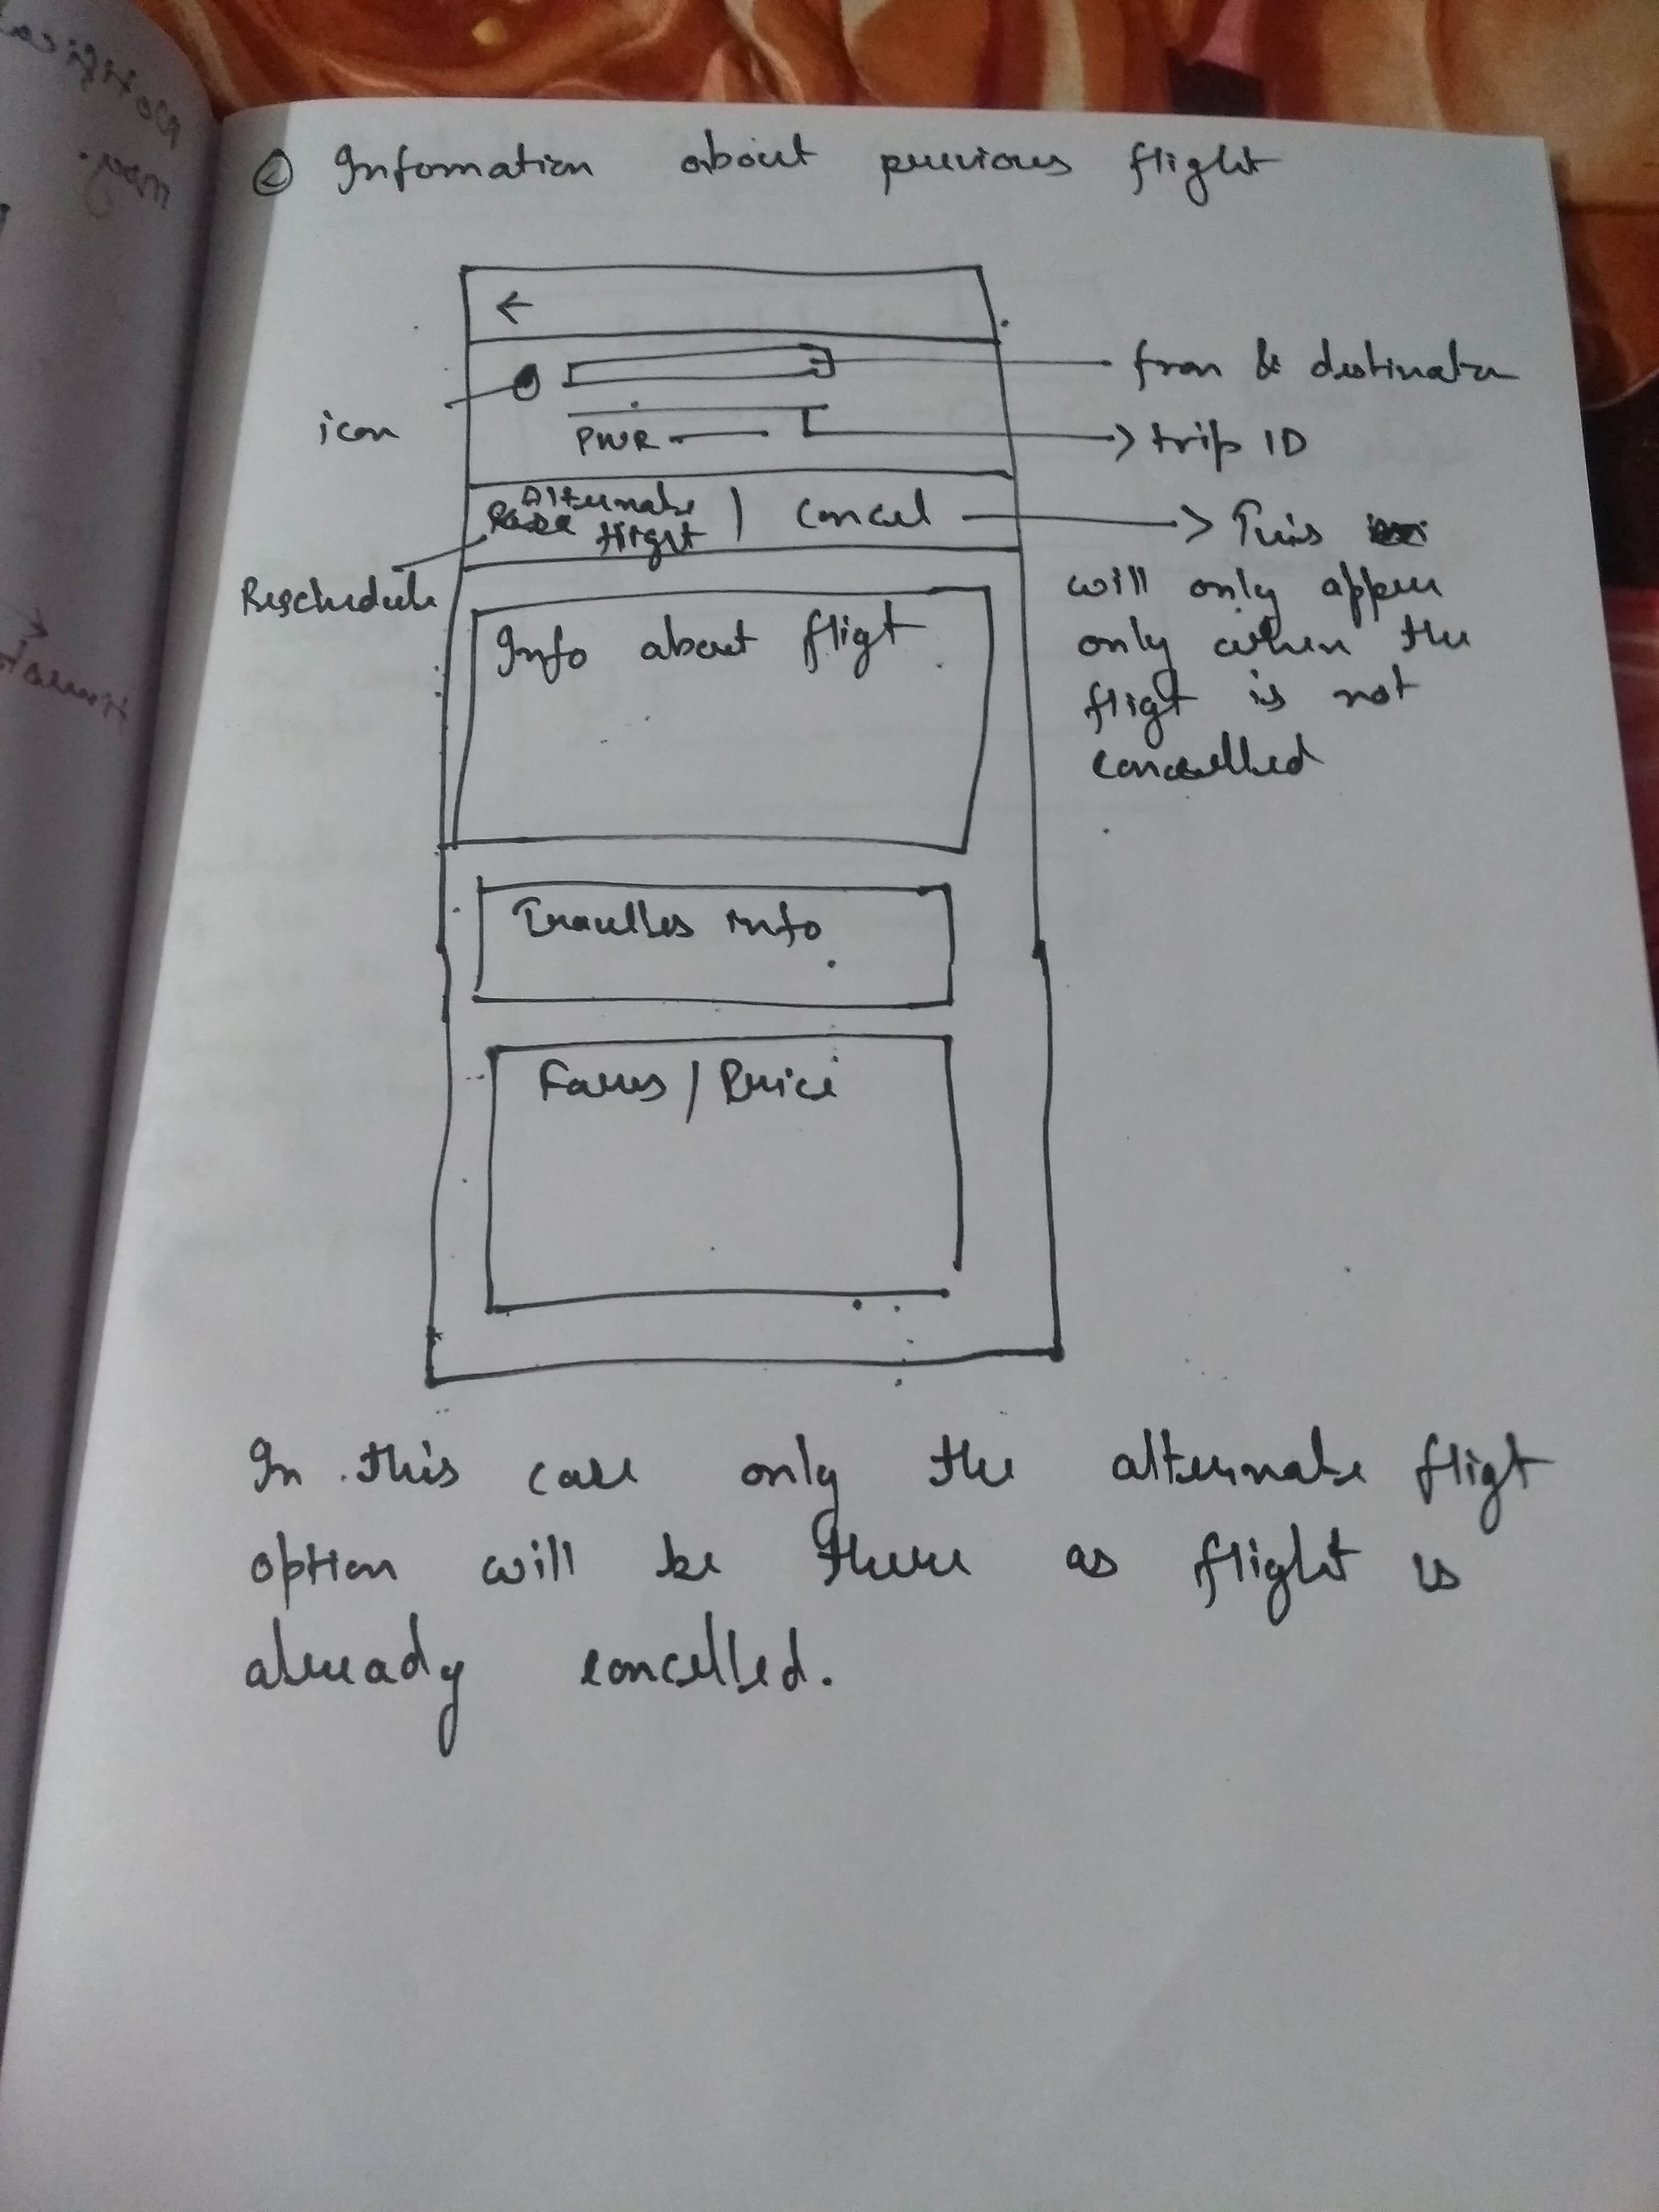 ② Infomation about previous flight
←
from & destination
icon
PNR
trip ID
Alternate
flight | Cancel
This
Reschedule
will only appear
only when the
fligt is not
cancelled
Info about fligt
Travelles info
Fares / Price
In this case only the alternate fligt
option will be there as flight is
already cancelled.